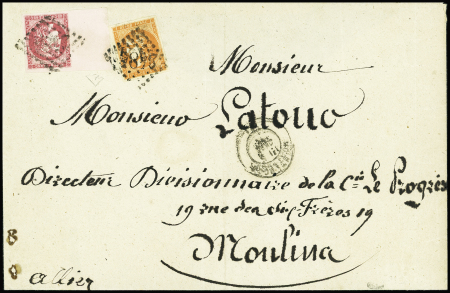 Monsieur
Monsieur Latouc
Directeur Divisionnaire de la Cie Le Progrès
19 rue des six Frères 19
Moulins
Allier